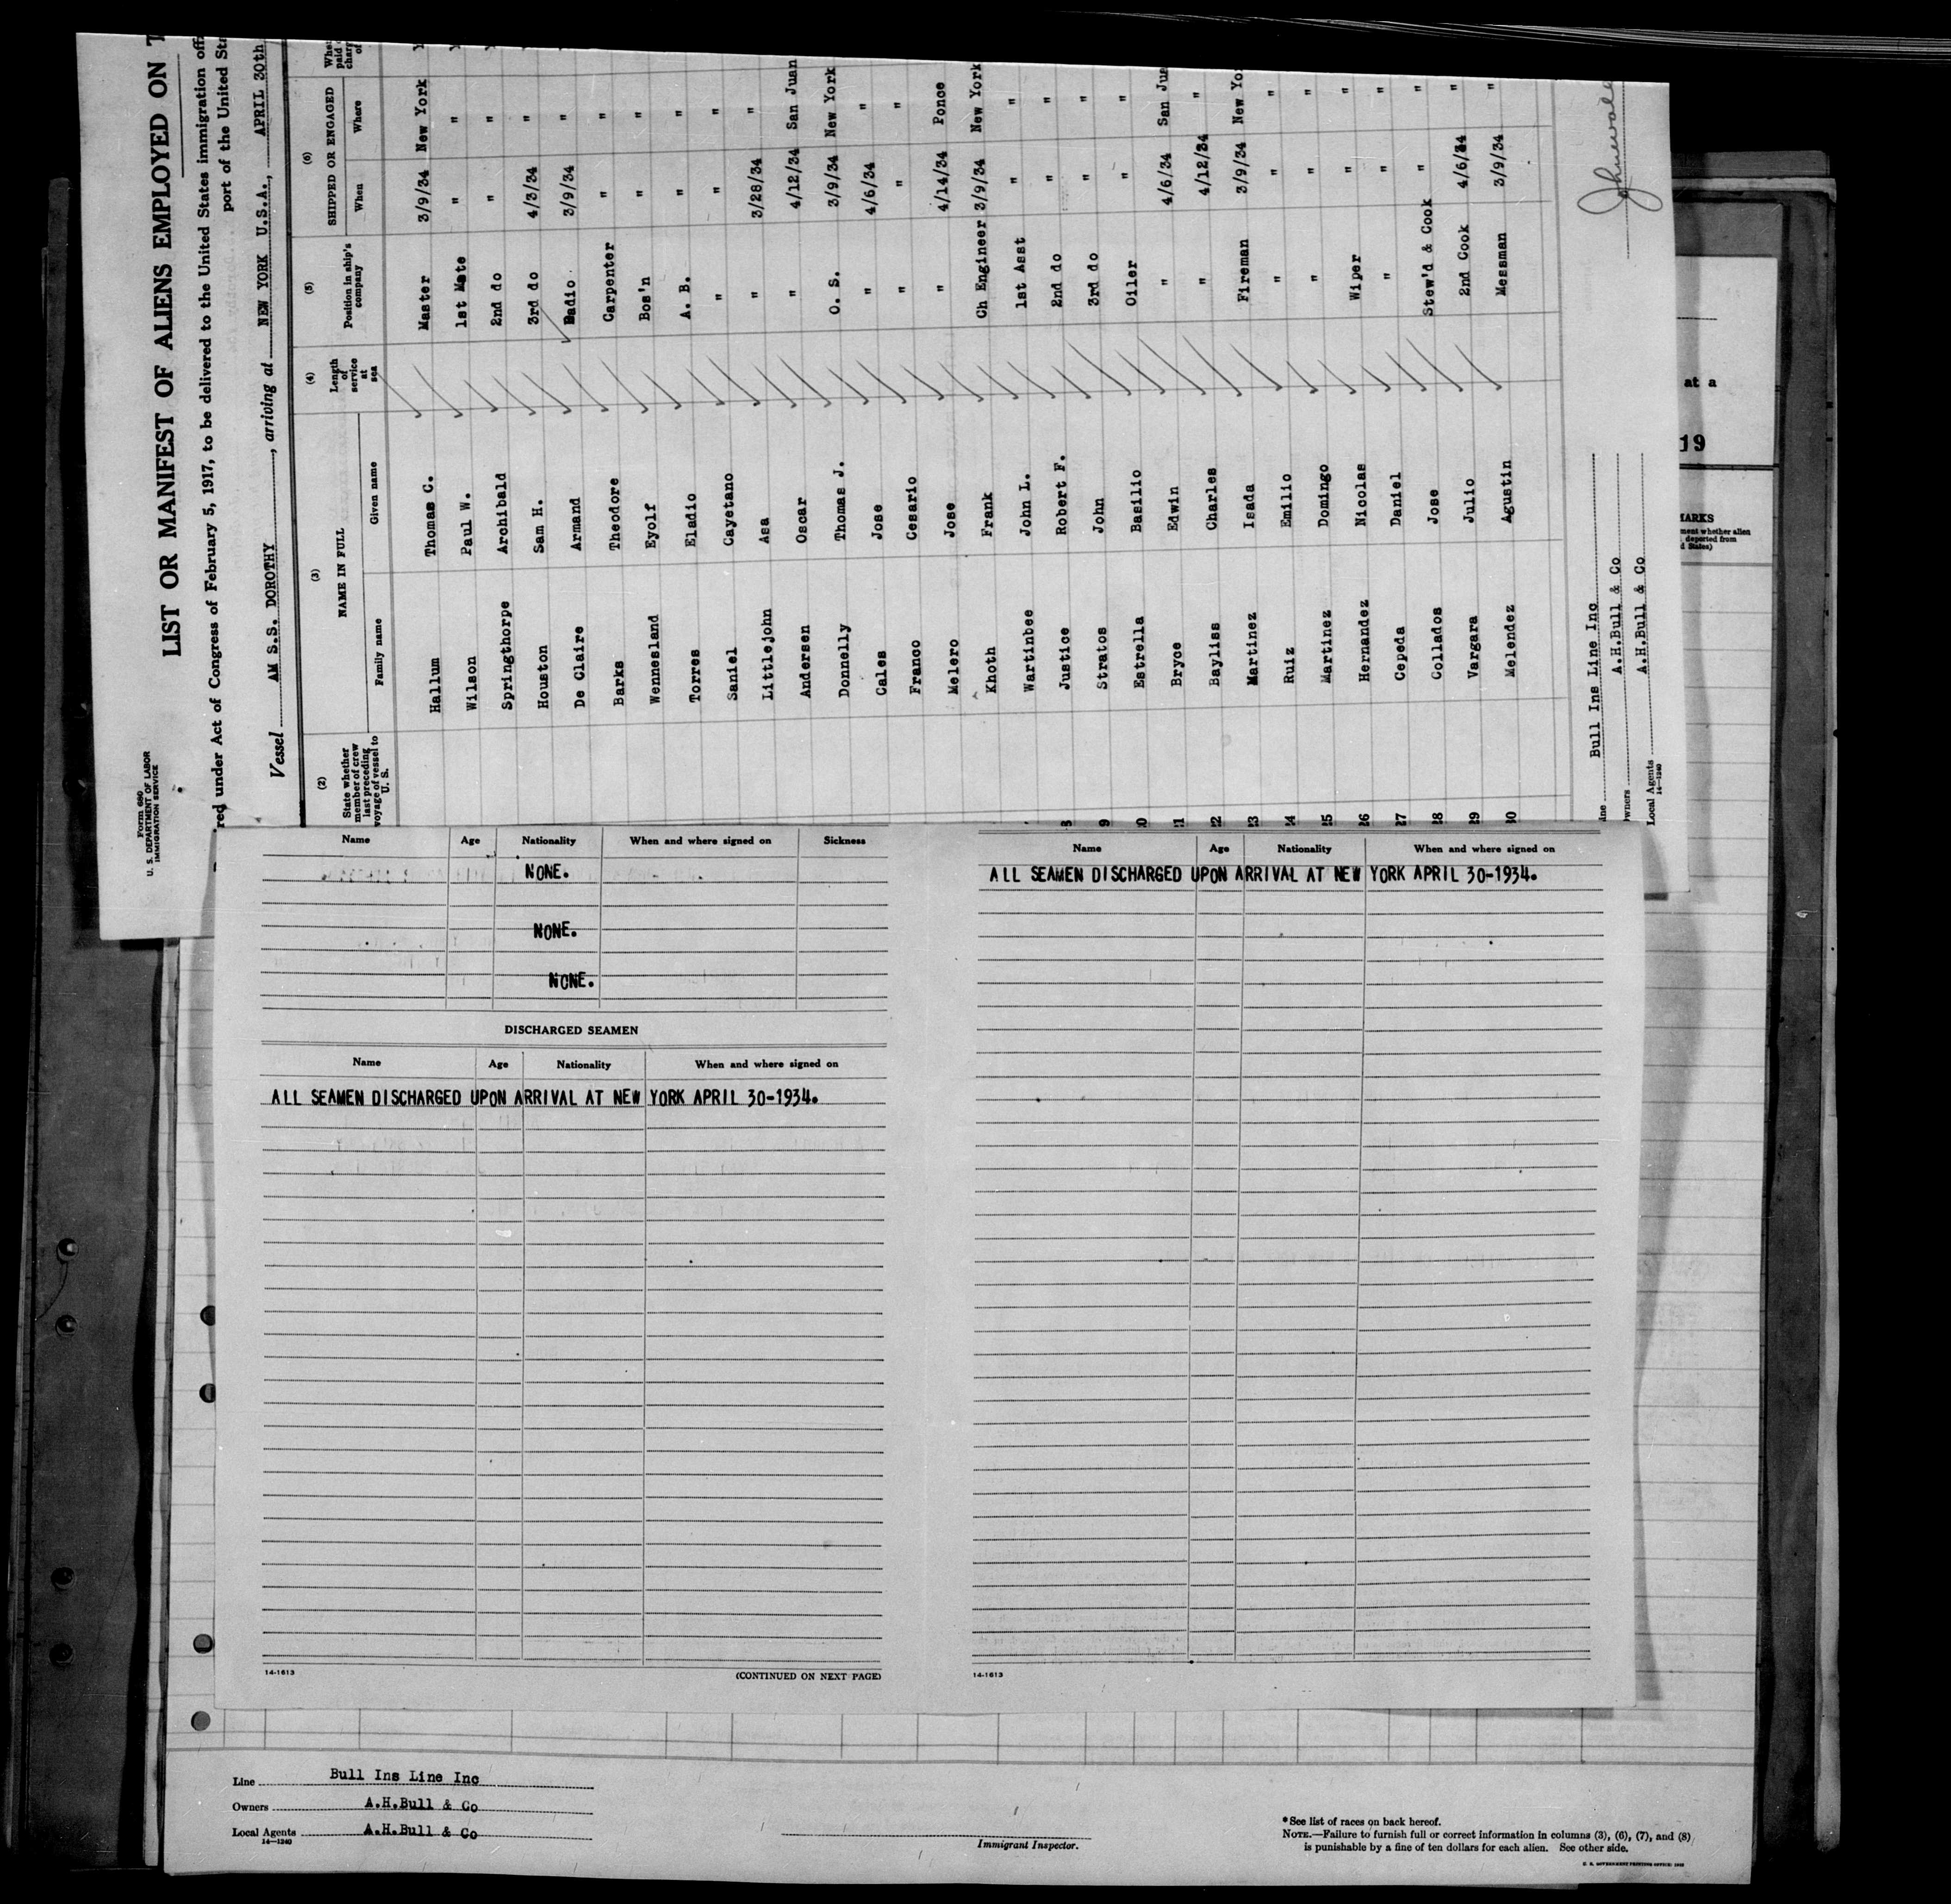 Form 680
U. S. DEPARTMENT OF LABOR
IMMIGRATION SERVICE
LIST OR MANIFEST OF ALIENS EMPLOYED ON
red under Act of Congress of February 5, 1917, to be delivered to the United States immigration
port of the United
Vessel AM S.S. DOROTHY, arriving at NEW YORK U.S.A., APRIL 30th
(2) (3) (4) (5) (6)
State whether member of crew last preceding voyage of vessel to U. S.
NAME IN FULL
Family name Given name
Length of service at sea
Position in ship's company
SHIPPED OR ENGAGED
When Where
Hallum Thomas C. Master 3/9/34 New York
Wilson Paul W. 1st Mate " "
Springthorpe Archibald 2nd do " "
Houston Sam H. 3rd do 4/3/34 "
De Claire Armand Radio 3/9/34 "
Barks Theodore Carpenter " "
Wennesland Eyolf Bos'n " "
Torres Eladio A. B. " "
Saniel Cayetano " " "
Littlejohn Asa " 3/28/34 "
Andersen Oscar " 4/12/34 San Juan
Donnelly Thomas J. O. S. 3/9/34 New York
Cales Jose " 4/6/34 "
Franco Cesario " " "
Melero Jose " 4/14/34 Ponce
Khoth Frank Ch Engineer 3/9/34 New York
Wartinbee John L. 1st Asst " "
Justice Robert F. 2nd do " "
Stratos John 3rd do " "
Estrella Basilio Oiler " "
Bryce Edwin " 4/6/34 San Jua
Bayliss Charles " 4/12/34 "
Martinez Isada Fireman 3/9/34 New Yo
Ruiz Emilio " " "
Martinez Domingo " " "
Hernandez Nicolas Wiper " "
Cepeda Daniel " " "
Collados Jose Stew'd & Cook " "
Vargara Julio 2nd Cook 4/6/34 "
Melendez Agustin Messman 3/9/34 "
Bull Ins Line Inc
A.H.Bull & Co
Local Agents A.H.Bull & Co
14—1240
at a
19
Name Age Nationality When and where signed on Sickness
NONE.
NONE.
NONE.
DISCHARGED SEAMEN
Name Age Nationality When and where signed on
ALL SEAMEN DISCHARGED UPON ARRIVAL AT NEW YORK APRIL 30-1934.
14-1613
(CONTINUED ON NEXT PAGE)
Name Age Nationality When and where signed on
ALL SEAMEN DISCHARGED UPON ARRIVAL AT NEW YORK APRIL 30-1934.
14-1613
Line Bull Ins Line Inc
Owners A.H.Bull & Co
Local Agents A.H.Bull & Co
14—1240
Immigrant Inspector.
*See list of races on back hereof.
NOTE.—Failure to furnish full or correct information in columns (3), (6), (7), and (8)
is punishable by a fine of ten dollars for each alien. See other side.